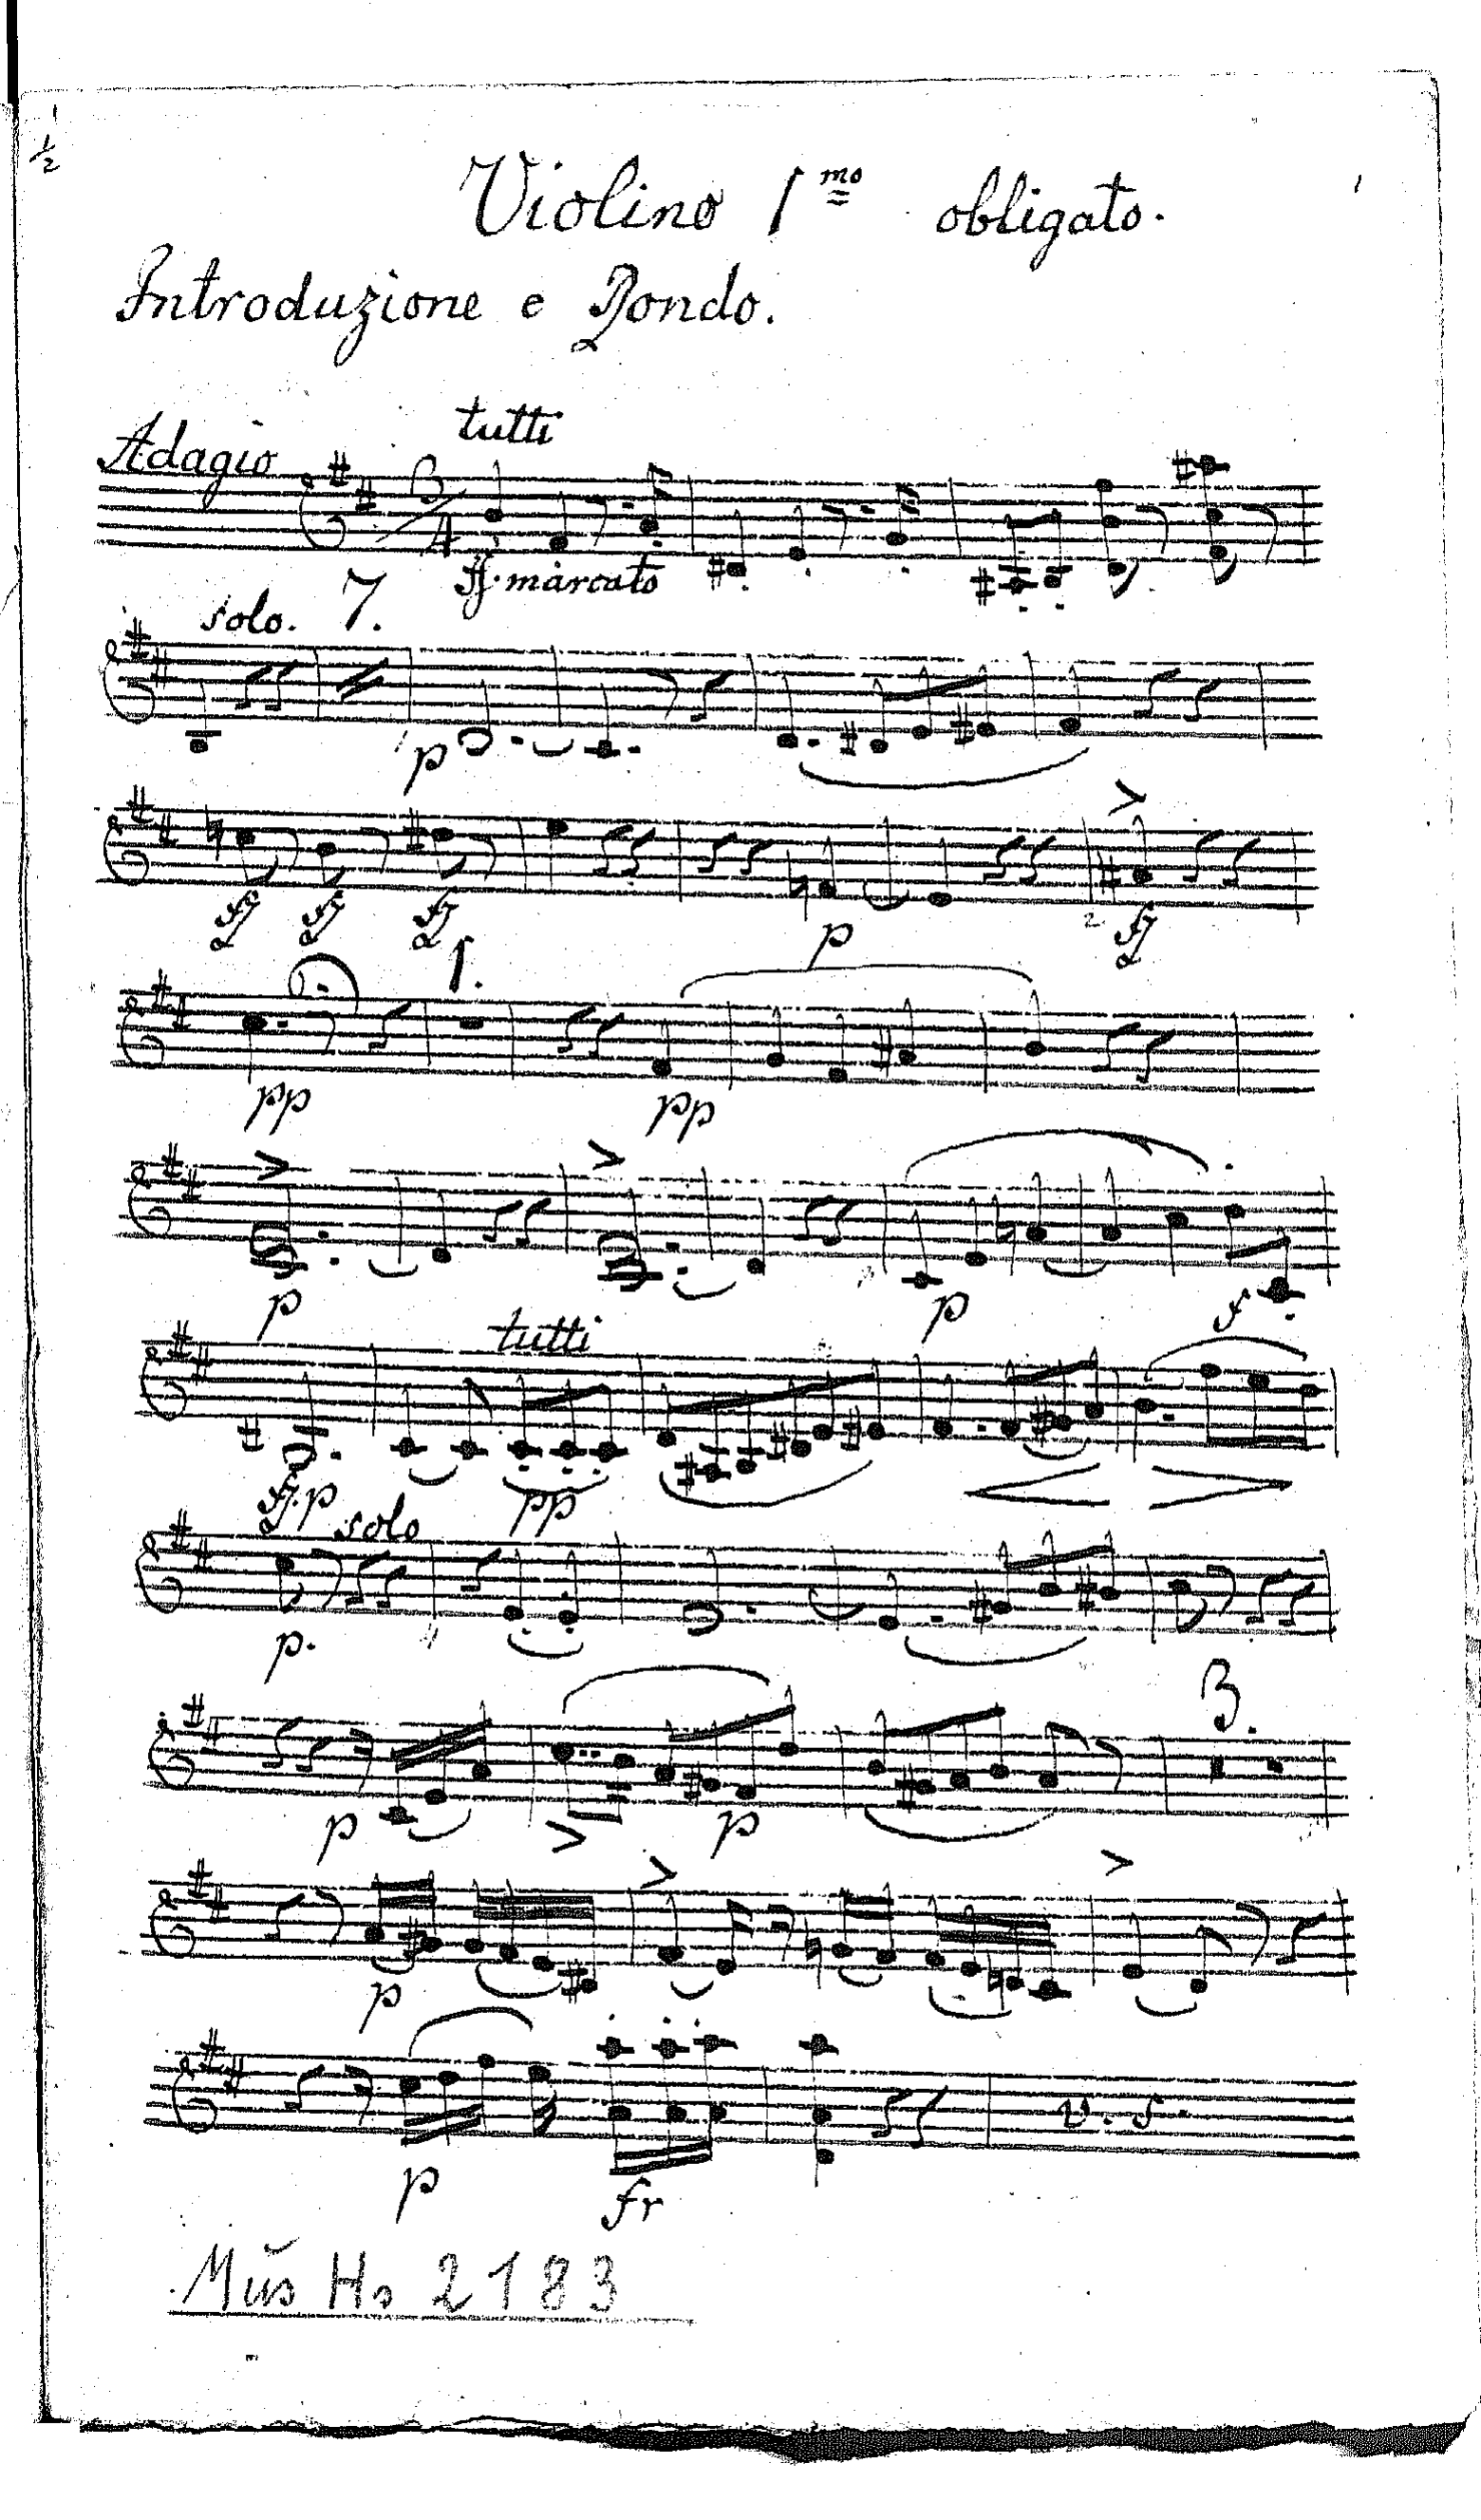 1
1/2
Violino 1mo obligato.
1
Introduzione e Rondo.
tutti
Adagio
3/4
ff. marcato
solo. 7.
p
fz fz fz p fz
1.
pp pp
p p f
tutti
fz. p pp
solo
p.
3.
p p
p
p fr
v. s.
Mus Hs 2183